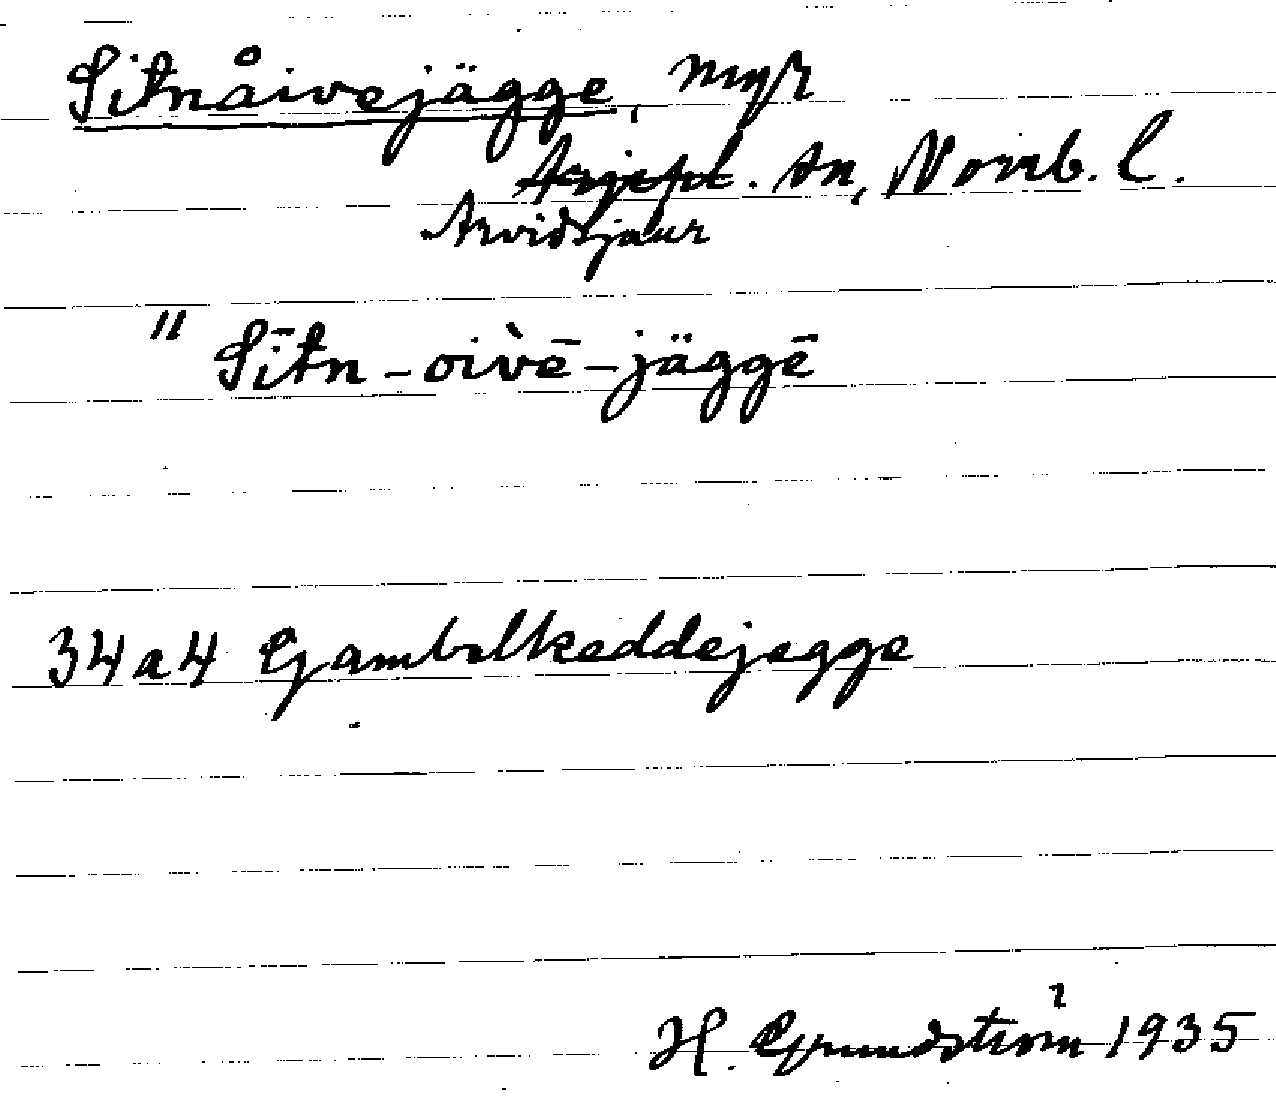 Sitnåivejägge, myr
Arjepl. sn, Norrb. l.
Arvidsjaur
" Sītn-oiv̀ē-jäggē
34a4 Gambelkeddejegge
H. Grundström 1935